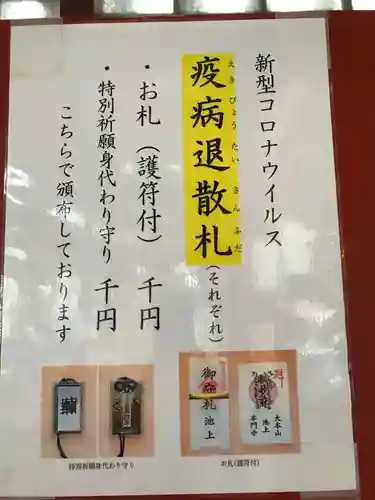 新型コロナウイルス
疫病退散札（それぞれ）
えきびょうたいさんふだ
・お札（護符付） 千円
・特別祈願身代わり守り 千円
こちらで頒布しております
特別祈願身代わり守り
御守札 池上
大本山
池上
本門寺
お札(護符付)